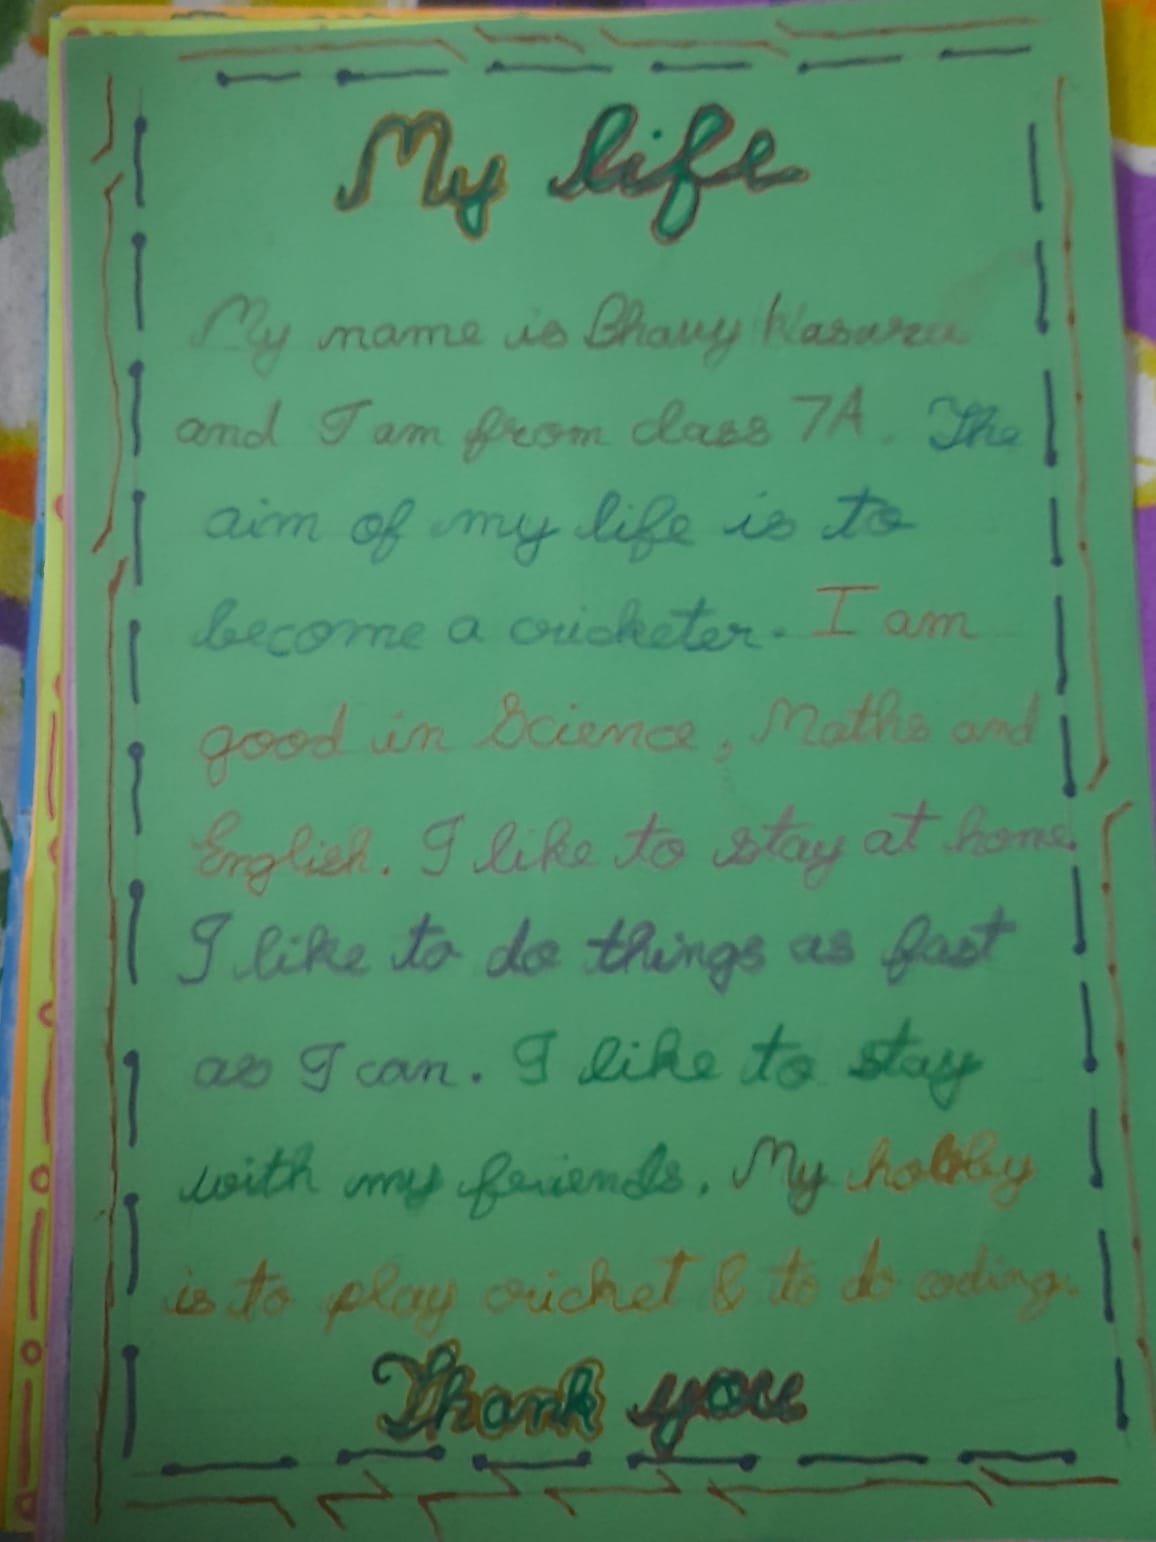 My life
My name is Bhavy
and I am from class 7A. The
aim of my life is to
become a cricketer. I am
good in Science, Maths and
English. I like to stay at home.
I like to do things as fast
as I can. I like to stay
with my friends. My hobby
is to play cricket & to do coding.
Thank you